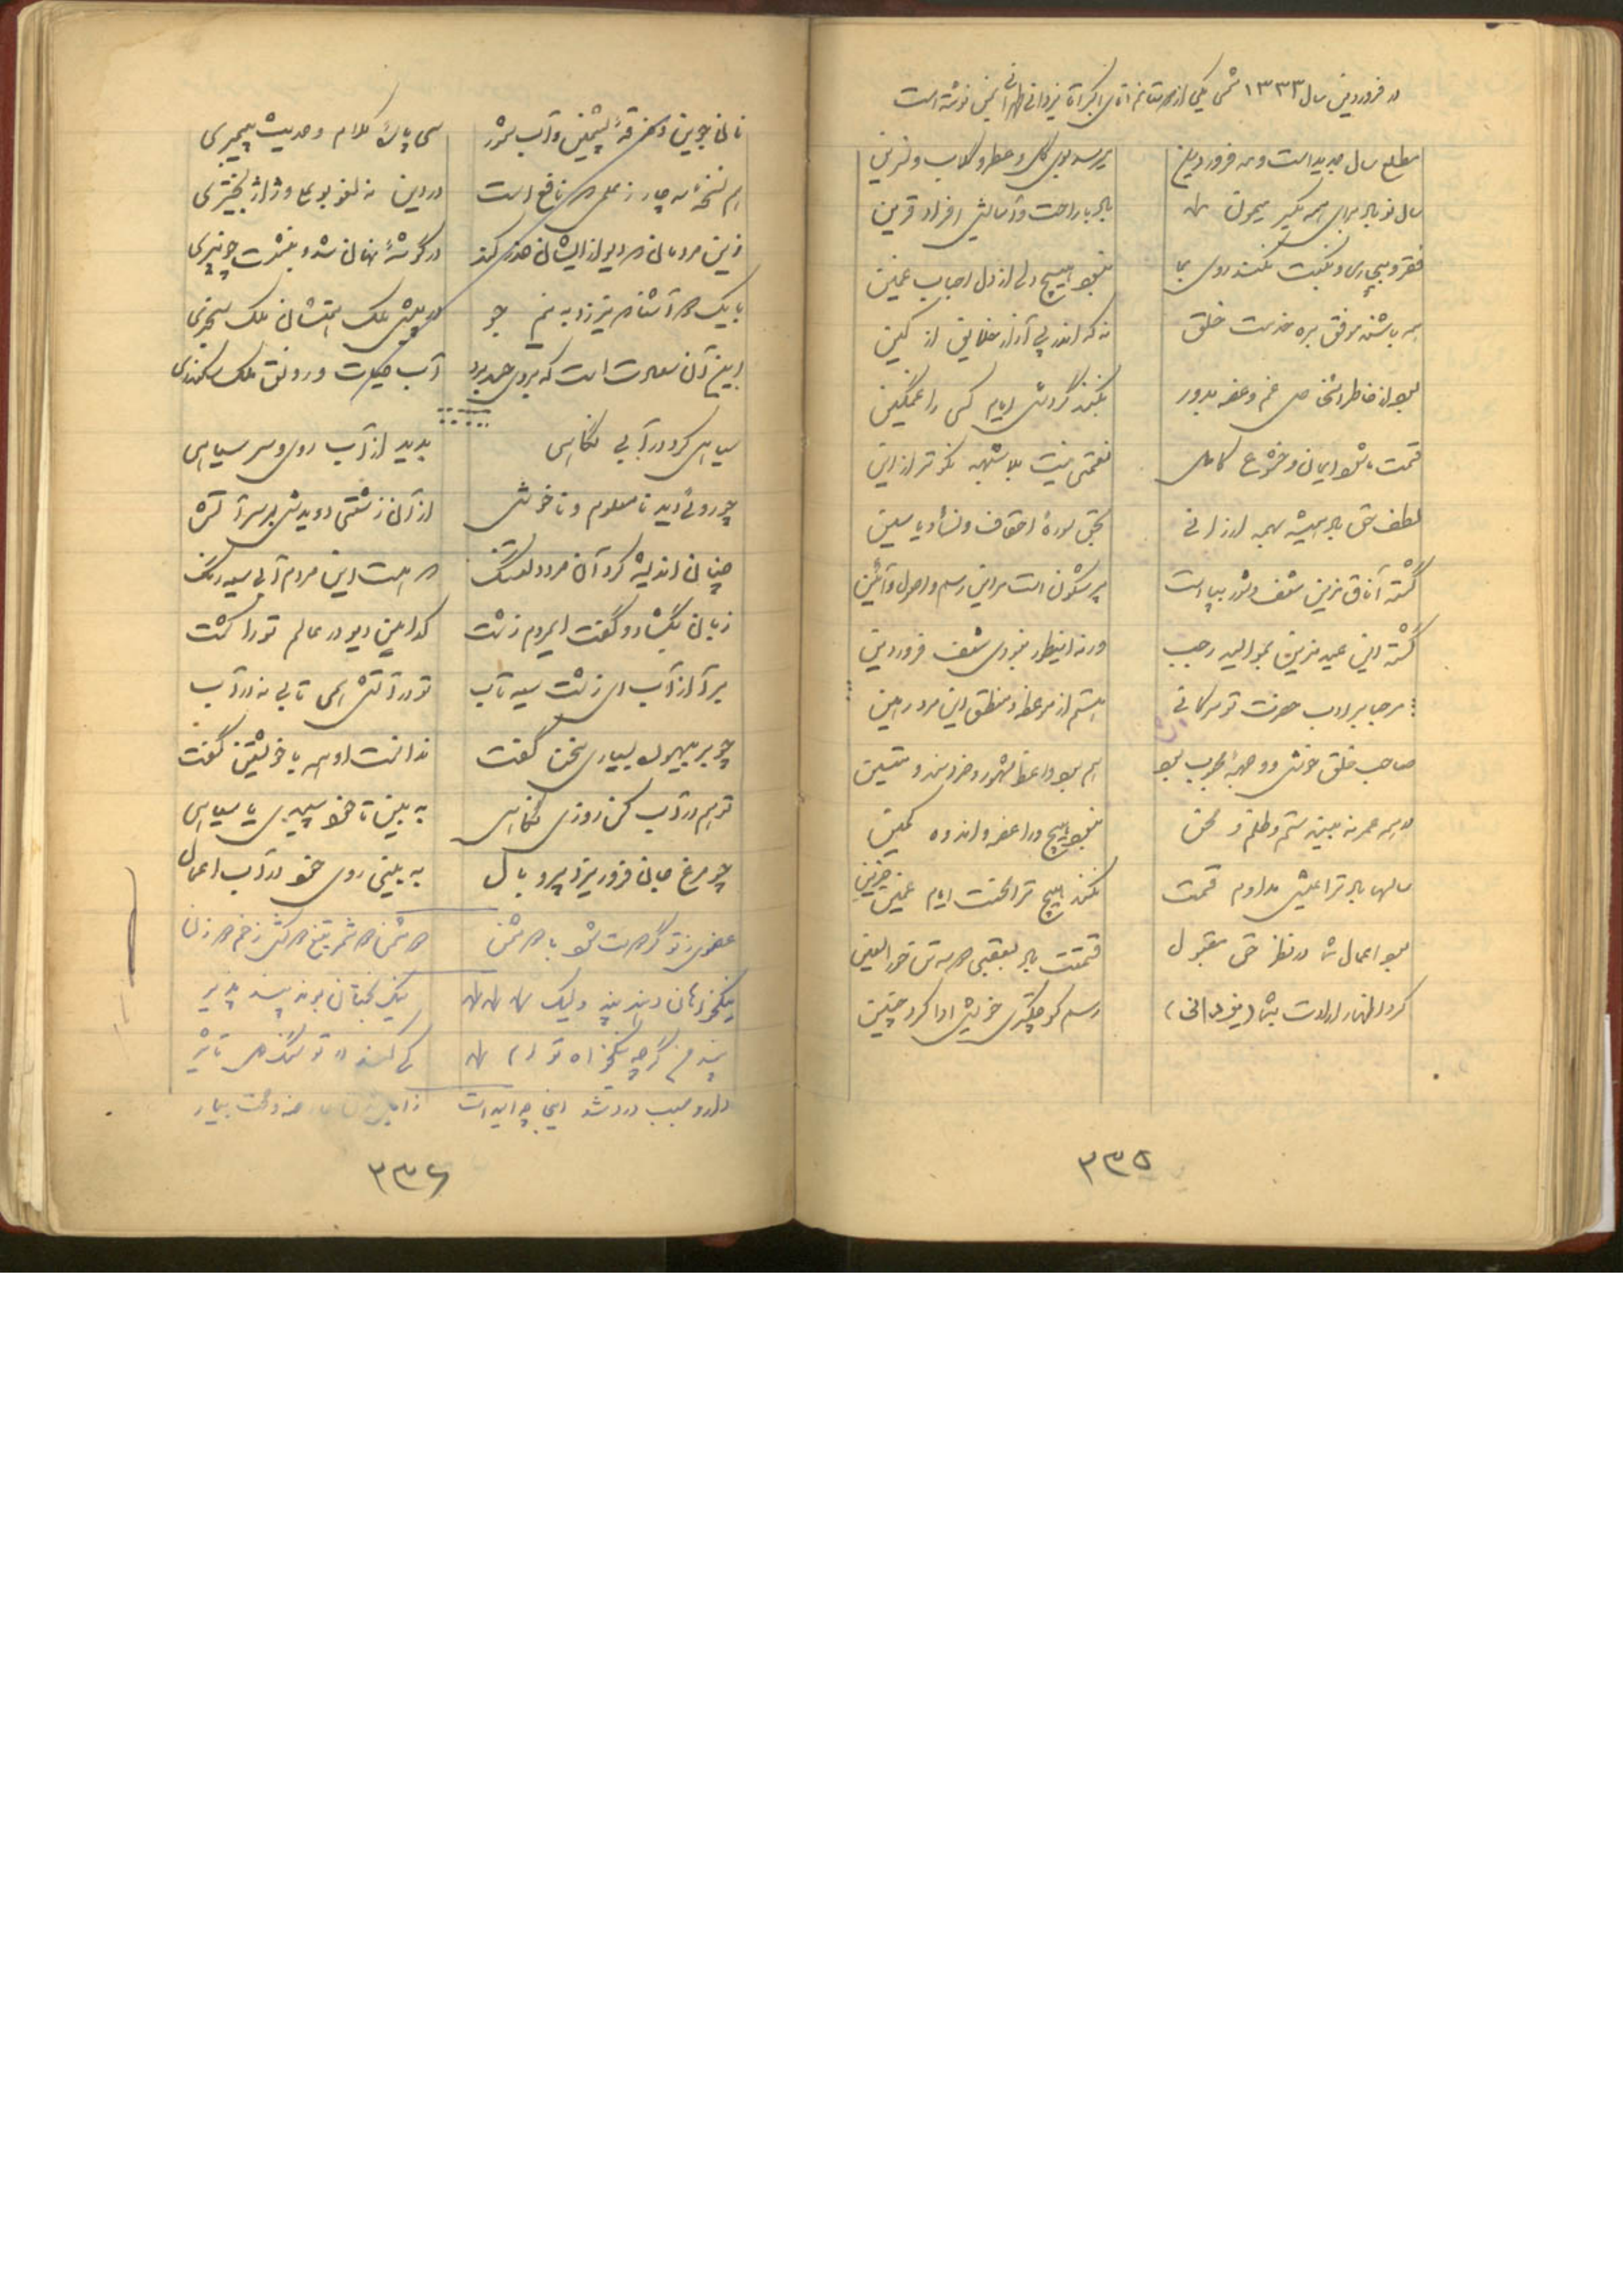 در فروردین سال ۱۳۳۳ شمسی یکی از آقای اکبر آقا یزدانی چنین نوشته است
مطلع سال جدید است و مه فروردین میرسد بوی گل و عطر و گلاب و نسرین
سال نو باد برای همه یکسر میمون باد با راحت و آسایش افراد قرین
فقر و بیچارگی و نکبت نکند روی بما نبود هیچ دلی از دل احباب غمین
همه باشند موفق بره خدمت خلق نه که اندر پی آزار خلایق از کین
بود از خاطر اشخاص غم و غصه بدور نکند گردش ایام کسی را غمگین
قسمت ما شود ایمان و خشوع کامل نعمتی نیست بلا شبهه نکوتر از این
لطف حق باد همیشه بهمه ارزانی بحق سورهٔ احقاف و نساء و یاسین
گشته آفاق مزین شعف و شور بپا است پر شگون است مر این رسم و اصول و آئین
گشته این عید مزین بموالید رجب ورنه اینطور نبودی شعف فروردین
مرحبا بر ادب حضرت تو هستم از موعظه و منطق این مرد رهین
صاحب خلق خوش و وجههٔ محبوب بود هم بود واعظ مشهور و خردمند و متین
در همه عمر نبیند ستم و ظلم و محن نبود هیچ ورا غصه و اندوه کمین
سالها باد ترا عیش مداوم قسمت نکند هیچ ترا محنت ایام غمین حزین
بود اعمال شما در نظر حق مقبول قسمتت باد بعقبی حور العین
کرد اظهار ارادت بشما (یزدانی) رسم کوچکتری خویش ادا کرد چنین
۳۳۵
نان جوین و خرقهٔ پشمین و آب شور سی پارهٔ کلام و حدیث پیمبری
هم نسخه سه چار ز علمی که نافع است در دین نه لغو بوعلی و ژاژ بحتری
زین مردمان که دیو از ایشان حذر کند در گوشهٔ نهان شده بنشسته چون پری
با یک دو آشنا که نیرزد به نیم جو در پیش ملک همتشان ملک سنجری
این آن سعادت است که بر وی حسد برد آب حیات و رونق ملک سکندری
سیاهی کرد در آبی نگاهی بدید از آب روی و سر سیاهی
چو روئی دید نا معلوم و ناخوش از آن زشتی دویدش بر سر آتش
چنان اندیشه کرد آن مرد دلتنگ که هست این مردم آبی سیه رنگ
زبان بگشاد و گفت ایمردم زشت کدامین دیو در عالم تو را کشت
برآ از آب ای زشت سیه تاب تو در آتش همی تابی نه در آب
چو بر بیهوده بسیاری سخن گفت ندانست او همه با خویشتن گفت
تو هم در آب کن روزی نگاهی به بین تا خود سپیدی یا سیاهی
چو مرغ جان فرو ریزد پر و بال به بینی روی خود در آب اعمال
عضوی ز تو گر دوست شود با دشمن دشمن دو شمر تیغ دو کش زخم دو زن
نیکخواهان دهند پند ولیک نیک بختان بوند پند پذیر
پند من گرچه نیکخواه توام کی کند در تو سنگدل تاثیر
دارو سبب درد شد اینجا چه امید است
۳۳۶